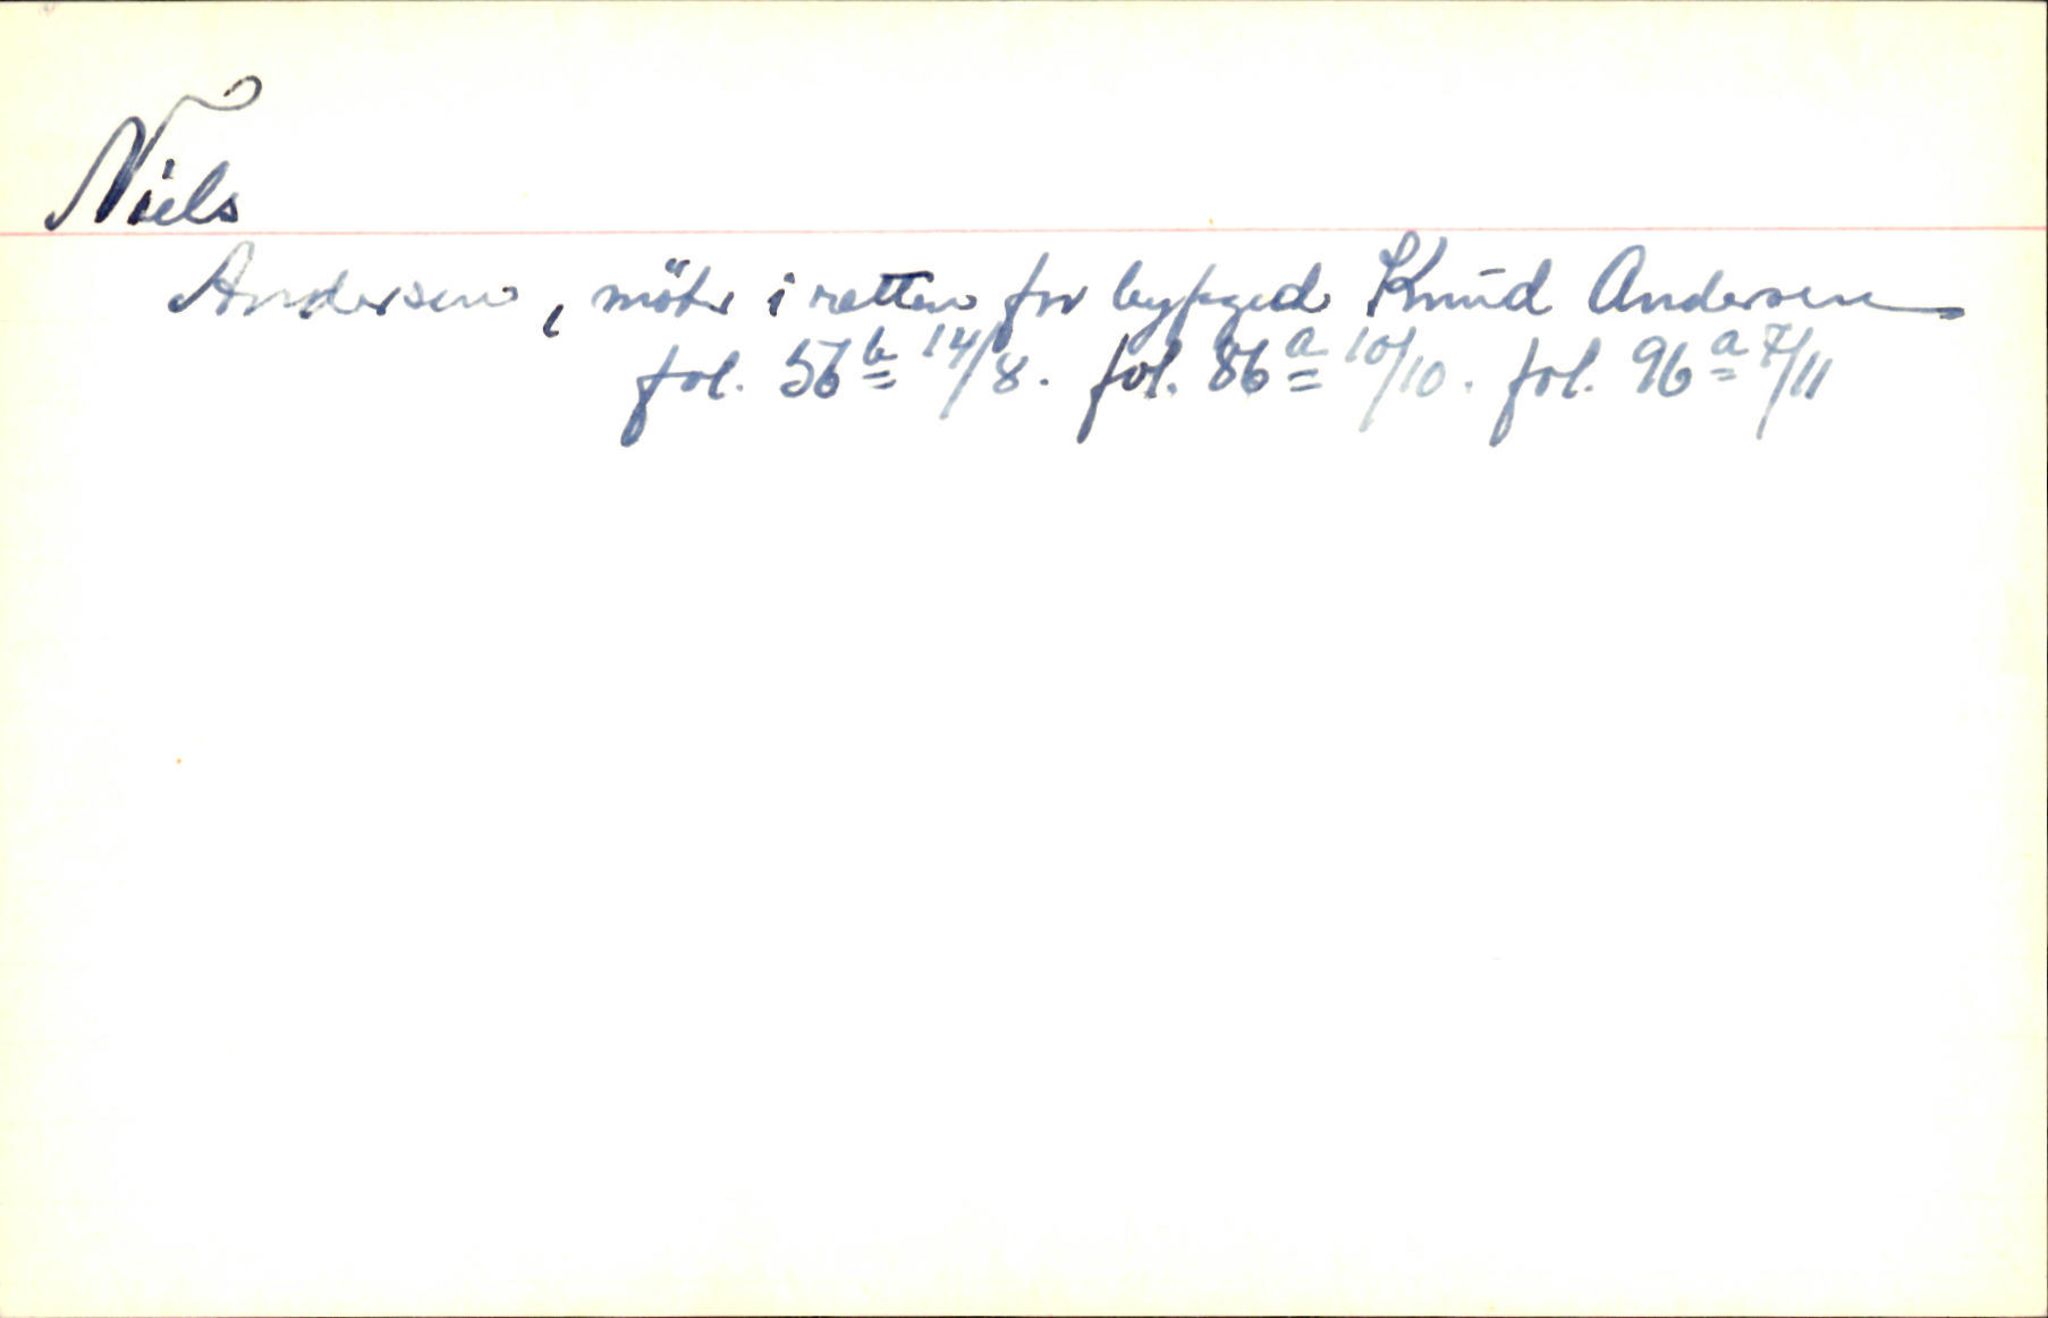 Niels
Andersen, möter i retten for byfoged Knud Andersen
fol. 56b 14/8. fol. 86a 10/10. fol. 96a 7/11